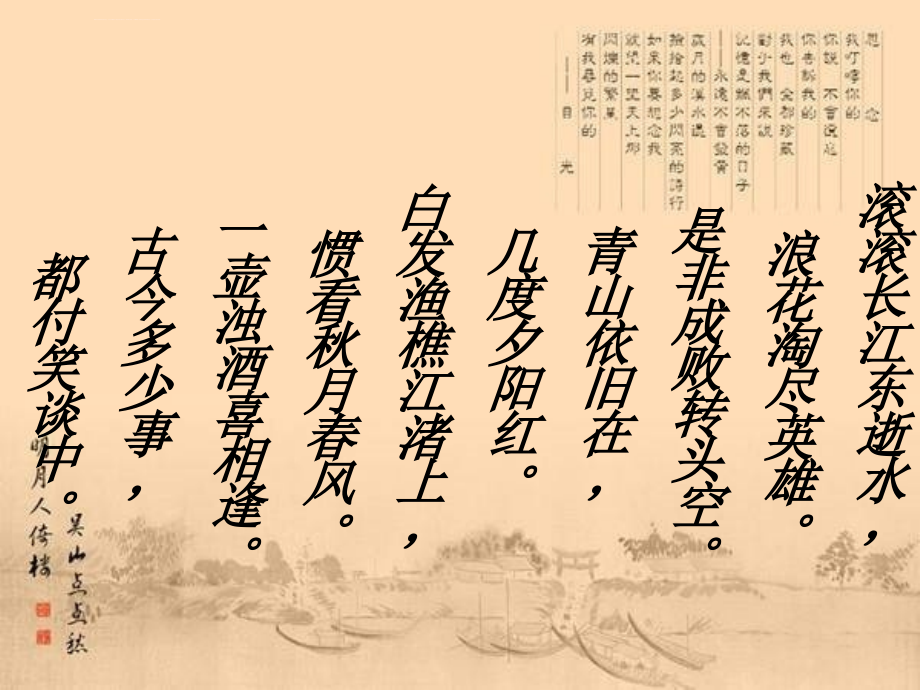 思念
我叮嚀你的
你說 不會遺忘
你告訴我的
我也 全都珍藏
對於我們來說
記憶是飄不落的日子
——永遠不會發黃
歲月的溪水邊
撿拾起多少閃亮的詩行
如果你要想念我
就望一望天上那
閃爍的繁星
有我尋覓你的
——目光
滚滚长江东逝水，
浪花淘尽英雄。
是非成败转头空。
青山依旧在，
几度夕阳红。
白发渔樵江渚上，
惯看秋月春风。
一壶浊酒喜相逢。
古今多少事，
都付笑谈中。
吴山点点愁
明月人倚楼